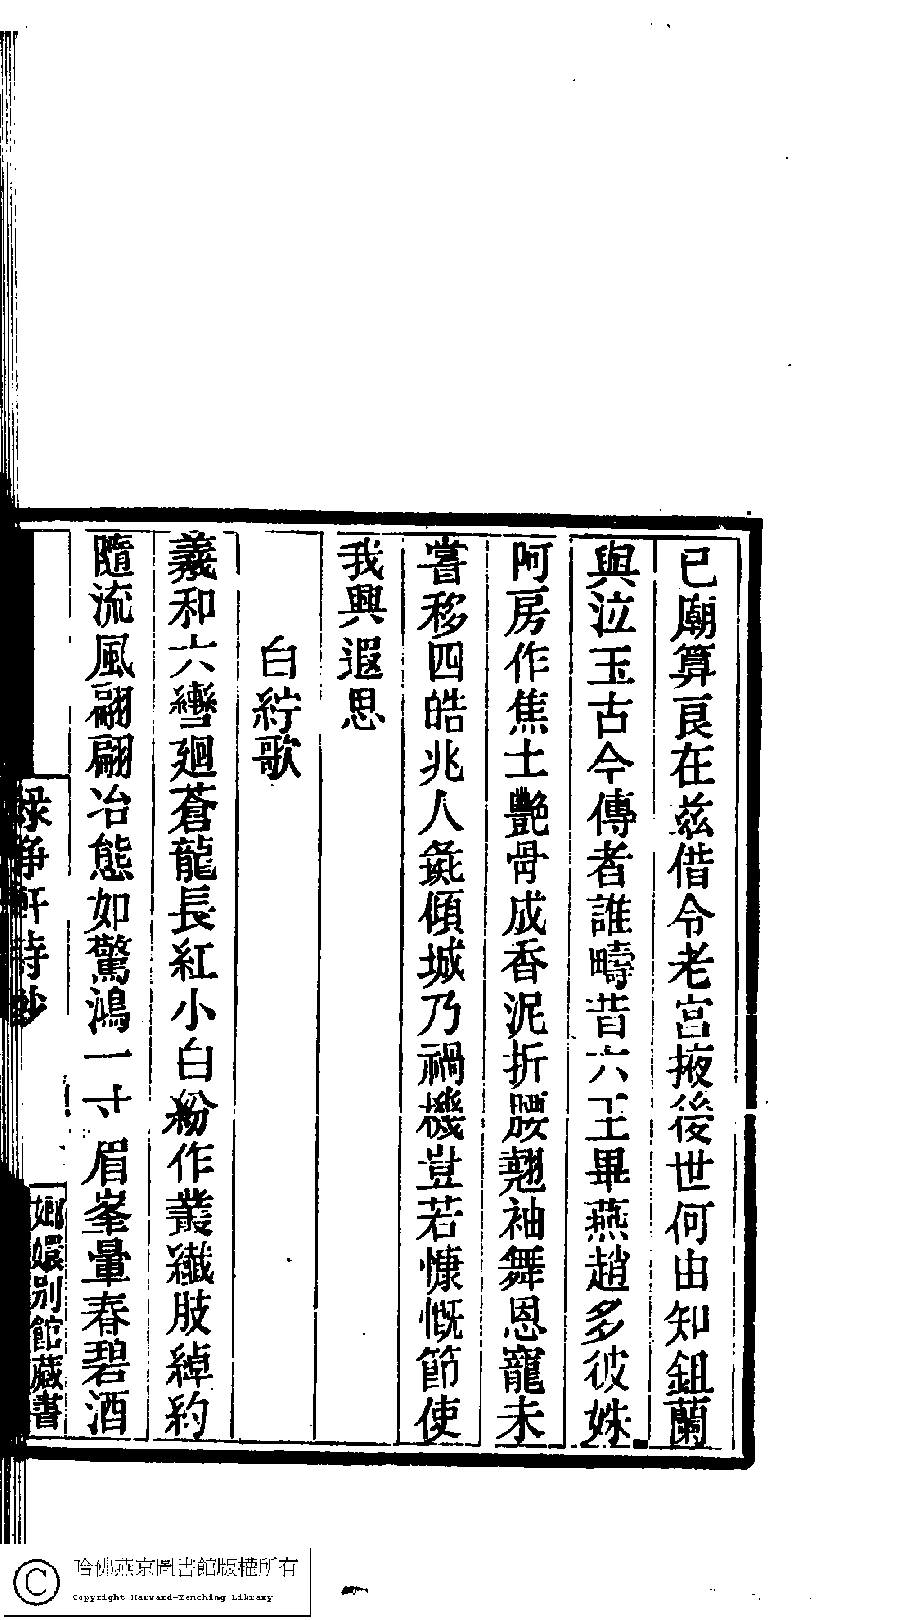 已廟算良在茲借令老宮掖後世何由知鉏蘭
與泣玉古今傳者誰疇昔六王畢燕趙多彼姝
阿房作焦土艷骨成香泥折腰翹袖舞恩寵未
嘗移四皓兆人彘傾城乃禍機豈若慷慨節使
我興遐思
白紵歌
羲和六轡迴蒼龍長紅小白紛作叢纖肢綽約
隨流風翩翩冶態如驚鴻一寸眉峯暈春碧酒
淨軒詩鈔
嫏嬛別館藏書
哈佛燕京圖書館版權所有
Copyright Harvard-Yenching Library